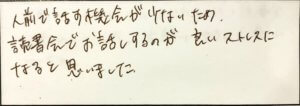 人前で話す機会が少ないため、
読書会でお話しするのが 良いストレスに
なると思いました